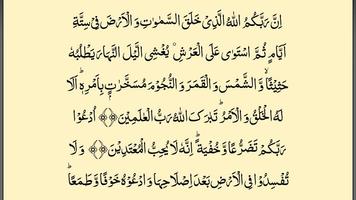 اِنَّ رَبَّكُمُ اللّٰهُ الَّذِیْ خَلَقَ السَّمٰوٰتِ وَ الْاَرْضَ فِیْ سِتَّةِ
اَیَّامٍ ثُمَّ اسْتَوٰی عَلَی الْعَرْشِ ۫ یُغْشِی الَّیْلَ النَّهَارَ یَطْلُبُهٗ
حَثِیْثًا ۙ وَّ الشَّمْسَ وَ الْقَمَرَ وَ النُّجُوْمَ مُسَخَّرٰتٍۭ بِاَمْرِهٖ ؕ اَلَا
لَهُ الْخَلْقُ وَ الْاَمْرُ ؕ تَبٰرَكَ اللّٰهُ رَبُّ الْعٰلَمِیْنَ ﴿﴾ اُدْعُوْا
رَبَّكُمْ تَضَرُّعًا وَّ خُفْیَةً ؕ اِنَّهٗ لَا یُحِبُّ الْمُعْتَدِیْنَ ﴿﴾ وَ لَا
تُفْسِدُوْا فِی الْاَرْضِ بَعْدَ اِصْلَاحِهَا وَ ادْعُوْهُ خَوْفًا وَّ طَمَعًا ؕ